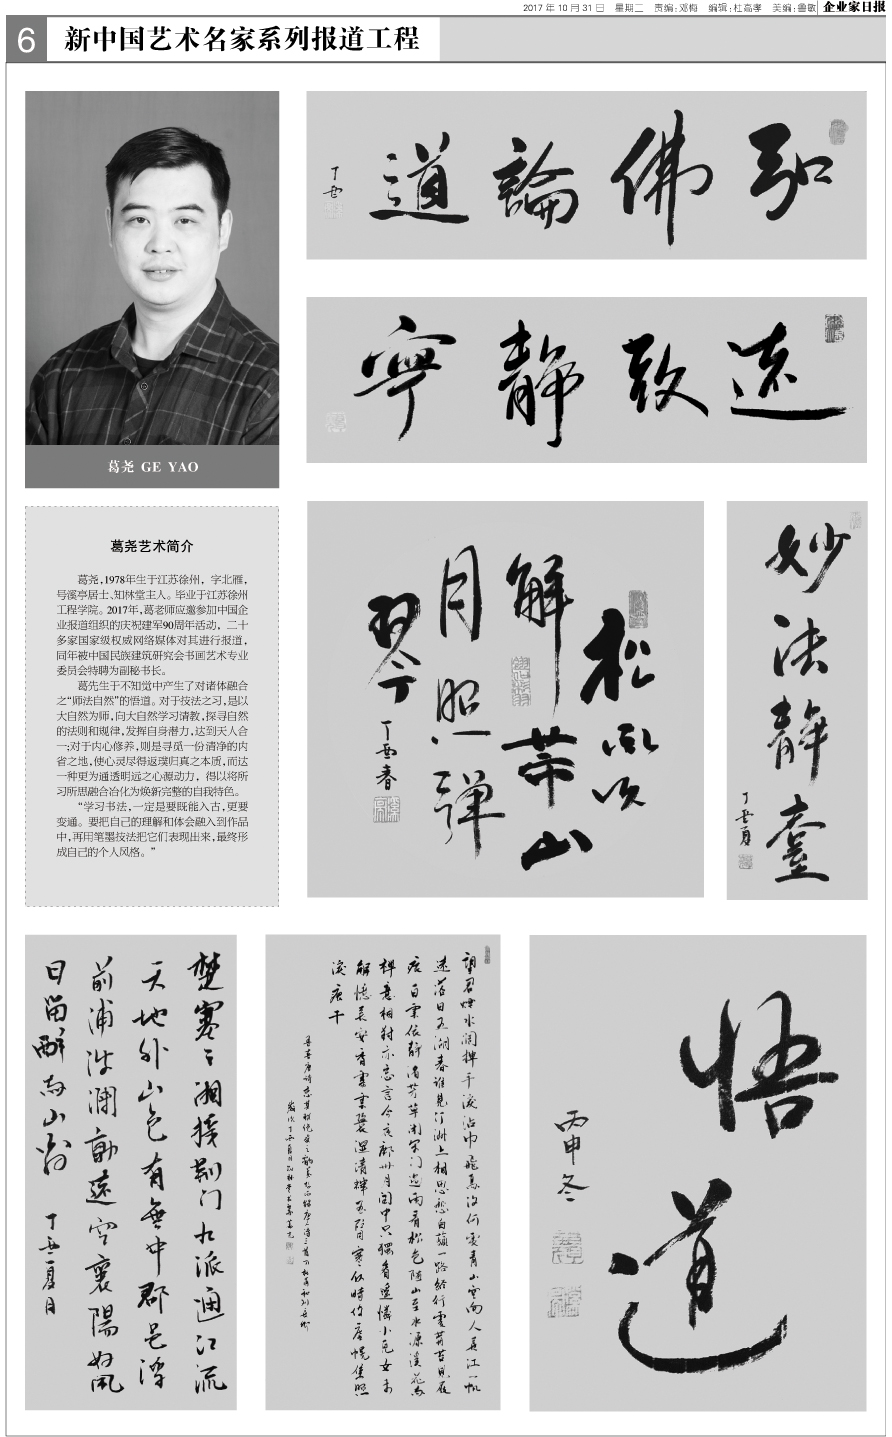 2017年10月31日 星期二 责编:邓梅 编辑:杜高孝 美编:鲁敏 企业家日报
6 新中国艺术名家系列报道工程
葛尧 GE YAO
葛尧艺术简介
葛尧,1978年生于江苏徐州，字北雁,
号溪亭居士、知林堂主人。毕业于江苏徐州
工程学院。2017年,葛老师应邀参加中国企
业报道组织的庆祝建军90周年活动，二十
多家国家级权威网络媒体对其进行报道，
同年被中国民族建筑研究会书画艺术专业
委员会特聘为副秘书长。
葛先生于不知觉中产生了对诸体融合
之“师法自然”的悟道。对于技法之习,是以
大自然为师,向大自然学习请教,探寻自然
的法则和规律,发挥自身潜力,达到天人合
一;对于内心修养,则是寻觅一份清净的内
省之地,使心灵尽得返璞归真之本质,而达
一种更为通透明远之心源动力，得以将所
习所思融合冶化为焕新完整的自我特色。
“学习书法,一定是要既能入古,更要
变通。要把自己的理解和体会融入到作品
中,再用笔墨技法把它们表现出来,最终形
成自己的个人风格。”
弘佛論道
丁酉
遠致静寧
松風吹
解帶山
月照彈
琴
丁酉春
妙法静臺
丁酉夏
楚塞三湘接荆门九派通江流
天地外山色有無中郡邑浮
前浦波瀾動遠空襄陽好風
日留醉與山翁
丁酉夏月
悟道
丙申冬